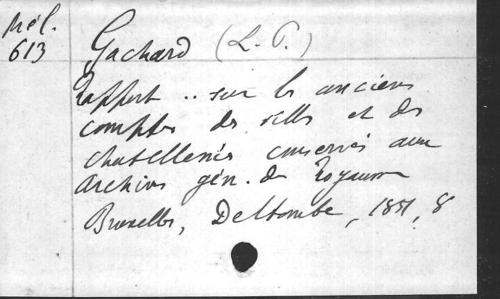 Mél.
613
Gachard (L. P.)
Rapport .. sur les anciens
comptes des villes et des
chatellenies conservés aux
Archives gén. du Royaume
Bruxelles, Deltombe, 1851, 8